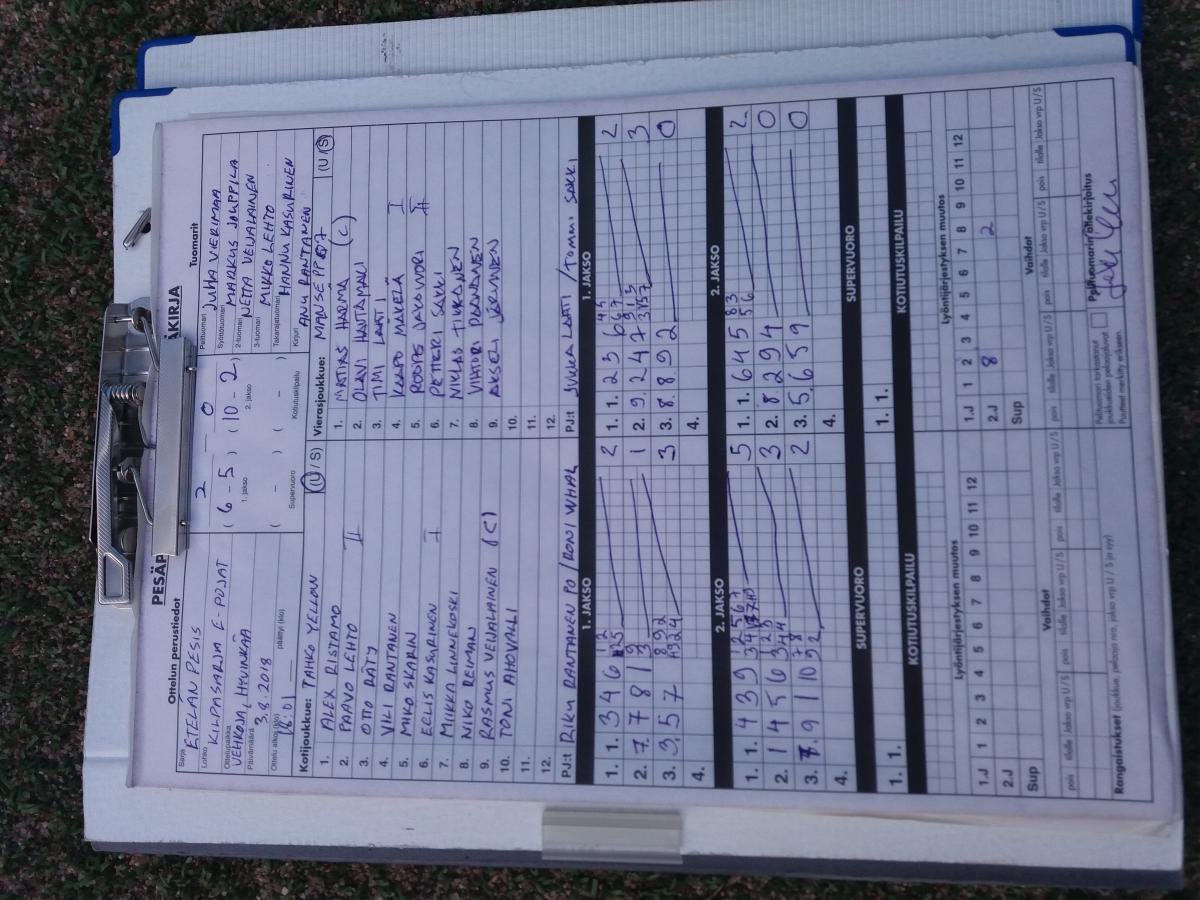 Ottelun perustiedot
Sarja ETELÄN PESIS
Lohko KILPASARJA E-POJAT
Ottelupaikka VEHKOJA, HYVINKÄÄ
Päivämäärä 3.8.2018
Ottelu alkoi (klo) 18:01 päättyi (klo)
2 - 0
( 6 - 5 ) ( 10 - 2 )
1. jakso 2. jakso
( - ) ( - )
Supervuoro Kotiutuskilpailu
Tuomarit
Pelituomari JUHA VIERIMAA
Syöttötuomari MARKUS JOUPPILA
2-tuomari NETTA VEIJALAINEN
3-tuomari MIKKO LEHTO
Takarajatuomari HANNU KASURINEN
Kirjuri ANU RANTANEN
Kotijoukkue: TAHKO YELLOW (U / S)
1. ALEX RISTAMO
2. PAAVO LEHTO
3. OTTO RÄTY II
4. VILI RANTANEN
5. MIKO SKARIN
6. EELIS KASURINEN I
7. MIIKKA LINNEKOSKI
8. NIKO REIMAN
9. RASMUS VEIJALAINEN (C)
10. TONI AHOVALLI
11.
12.
PJ:t RIKU RANTANEN PO / RONI WHAL
Vierasjoukkue: MANSE PP (U / S)
1. MATIAS HARMA
2. OLAVI HAUTAMÄKI (C)
3. TIMI LAHTI
4. KAAPO MÄKELÄ I
5. ROOPE JAKOVUORI
6. PETTERI SAKKI II
7. NIKLAS TIKKANEN
8. VIHTORI
9. AKSELI JÄRVINEN
10.
11.
12.
PJ:t JUKKA LAHTI / TOMMI SAKKI
1. JAKSO
1. 1. 3 4 6 2
2. 7. 7 8 1 1
3. 3. 5 7 3
4.
1. JAKSO
1. 1. 2 3 6 2
2. 9. 2 4 7 3
3. 8. 8 9 2 0
4.
2. JAKSO
1. 1. 4 3 9 5
2. 1 4 5 6 3
3. 9 1 10 2
4.
2. JAKSO
1. 1. 6 4 5 2
2. 8. 2 9 4 0
3. 5. 6 5 9 0
4.
SUPERVUORO
1. 1.
SUPERVUORO
1. 1.
KOTIUTUSKILPAILU
KOTIUTUSKILPAILU
Lyöntijärjestyksen muutos
1.J 1 2 3 4 5 6 7 8 9 10 11 12
2.J
Sup
Lyöntijärjestyksen muutos
1.J 1 2 3 4 5 6 7 8 9 10 11 12
2.J 8 2
Sup
Vaihdot
pois tilalle Jakso vrp U / S pois tilalle Jakso vrp U / S
Vaihdot
pois tilalle Jakso vrp U / S pois tilalle Jakso vrp U / S
Rangaistukset (joukkue, pelaaja nro, jakso vrp, U / S ja syy)
Pelituomarin allekirjoitus